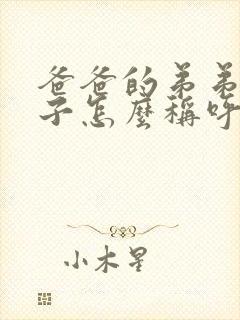 爸爸的弟弟
子怎麼稱呼
小木星